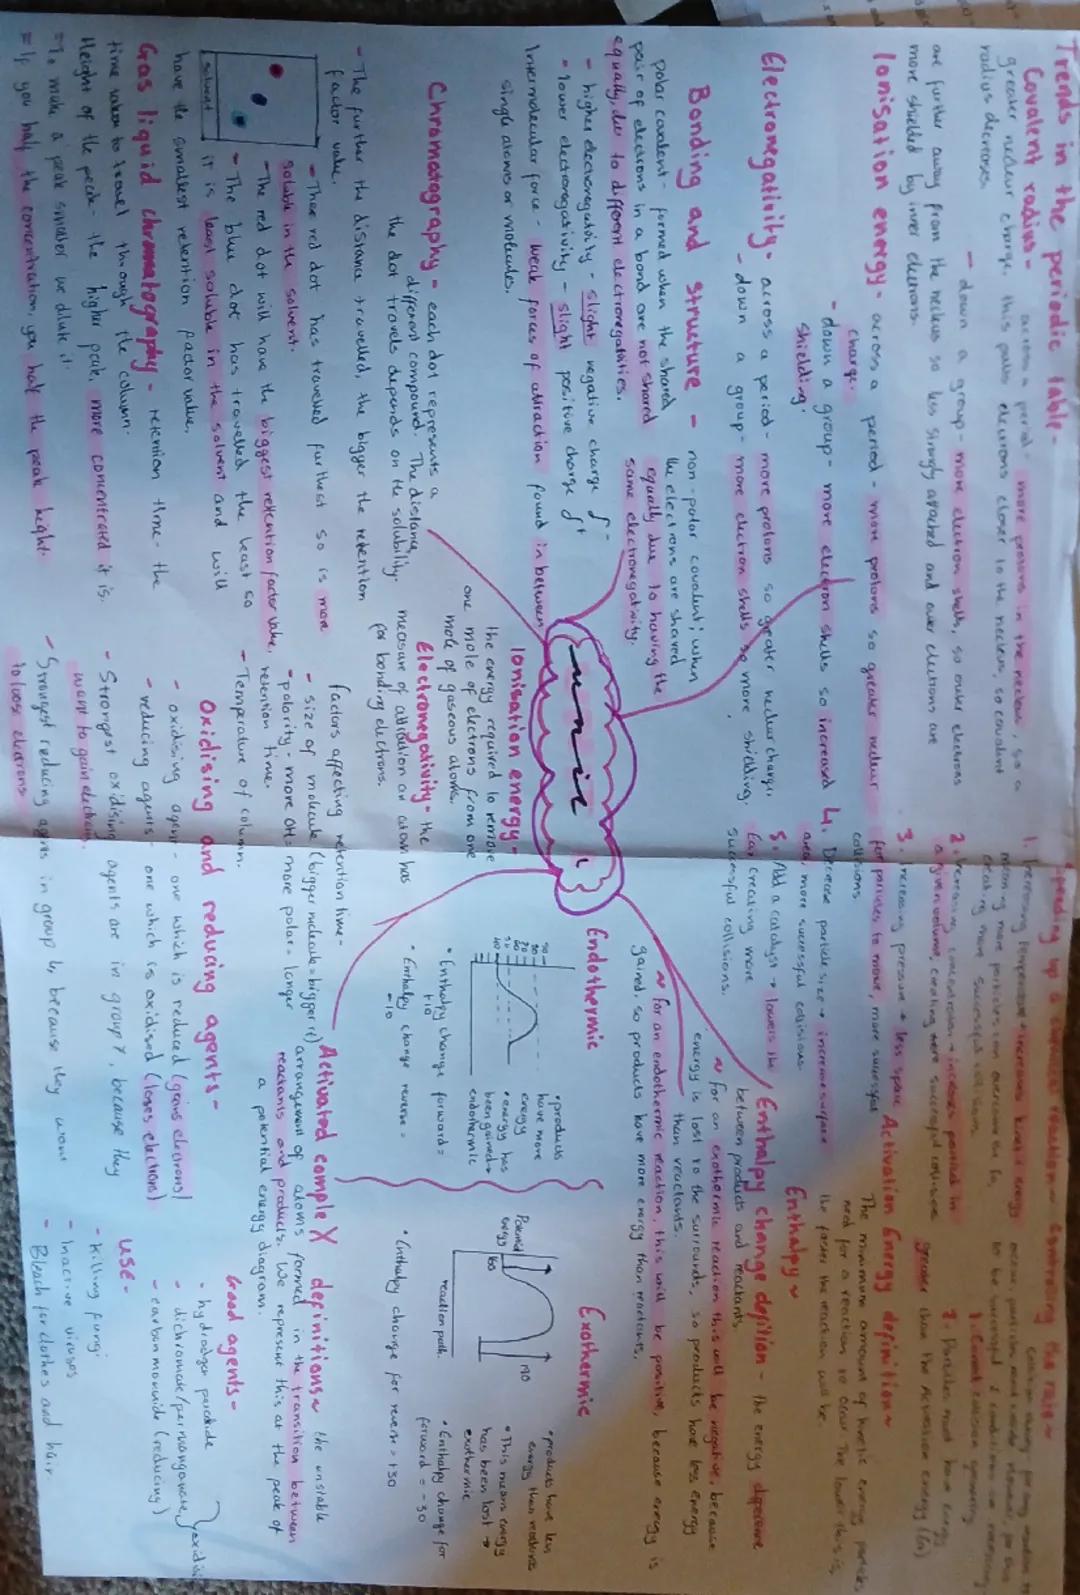 Trends in the periodic table -
Covalent radius - across a period - more protons in the nucleus, so a
greater nuclear charge, this pulls electrons closer to the nucleus, so covalent
radius decreases.
- down a group - more electron shells, so outer electrons
are further away from the nucleus so less strongly attached and outer electrons are
more shielded by inner electrons.
Ionisation energy - across a period - more protons so greater nuclear
charge.
- down a group - more electron shells so increased
shielding.
Electronegativity - across a period - more protons so greater nuclear charge.
- down a group - more electron shells so more shielding.
Bonding and struture -
polar covalent - formed when the shared
pair of electrons in a bond are not shared
equally, due to different electronegativities.
- higher electronegativity - slight negative charge δ-
- lower electronegativity - slight positive charge δ+
non-polar covalent; when
the electrons are shared
equally due to having the
same electronegativity.
Intermolecular force - weak forces of attraction found in between
single atoms or molecules.
Chromatography - each dot represents a
different compound. The distance
the dot travels depends on the solubility.
- The further the distance travelled, the bigger the retention
factor value.
- Ther red dot has travelled furthest so is more
soluble in the solvent.
- The red dot will have the biggest retention factor value.
- The blue dot has travelled the least so
it is least soluble in the solvent and will
have the smallest retention factor value.
solvent
Gas liquid chromatography - retention time - the
time taken to travel through the column.
Height of the peak - the higher peak, more concentrated it is.
= To make a peak smaller we dilute it.
= If you half the concentration, you half the peak height.
unit 1
Ionisation energy -
the energy required to remove
one mole of electrons from one
mole of gaseous atoms.
Electronegativity - the
measure of attribution an atom has
for bonding electrons.
factors affecting retention time -
- size of molecule (bigger molecule = bigger rt)
- polarity - more OH = more polar = longer
retention time.
- Temperature of column.
Oxidising and reducing agents -
- oxidising agent - one which is reduced (gains electrons)
- reducing agents - one which is oxidised (loses electrons)
- Strongest oxidising agents are in group 7, because they
want to gain electrons.
- Strongest reducing agents in group 1, because they want
to loose electrons
Speeding up a chemical reaction ~ Controlling the rate ~
1. Increasing temperature → increases kinetic energy
meaning more particles can overcome the Ea,
creating more successful collisions.
2. Increasing concentration → increases particles in
a given volume, creating more successful collisions
3. Increasing pressure → less space
for particles to move, more successful
collisions
4. Decrease particle size → increase surface
area, more successful collisions.
5. Add a catalyst → lowers the
Ea, creating more
successful collisions.
to be successful 2 conditions
1. Correct collision geometry
2. Particles must have energy
greater than the Activation energy (Ea)
Activation Energy definition ~
The minimum amount of kinetic energy particles
need for a reaction to occur. The lower this is,
the faster the reaction will be.
Enthalpy ~
Enthalpy change defition - the energy difference
between products and reactants.
~ for an exothermic reaction this will be negative, because
energy is lost to the surrounds, so products have less energy
than reactants.
~ for an endothermic reaction, this will be positive, because energy is
gained, so products have more energy than reactants.
Endothermic
• products
have more
energy
• energy has
been gained →
endothermic
• Enthalpy change forward =
+10
• Enthalpy change reverse =
-10
Exothermic
Potential
energy
reaction path.
• products have less
energy than reactants
• This means energy
has been lost →
exothermic
• Enthalpy change for
forward = -30
• Enthalpy change for reverse = +30
Activated complex definitions ~ the unstable
arrangement of atoms formed in the transition between
reactants and products. We represent this at the peak of
a potential energy diagram.
Good agents -
- hydrogen peroxide
- dichromate/permanganate
- carbon monoxide (reducing)
use -
- killing fungi
- Inactive viruses
- Bleach for clothes and hair